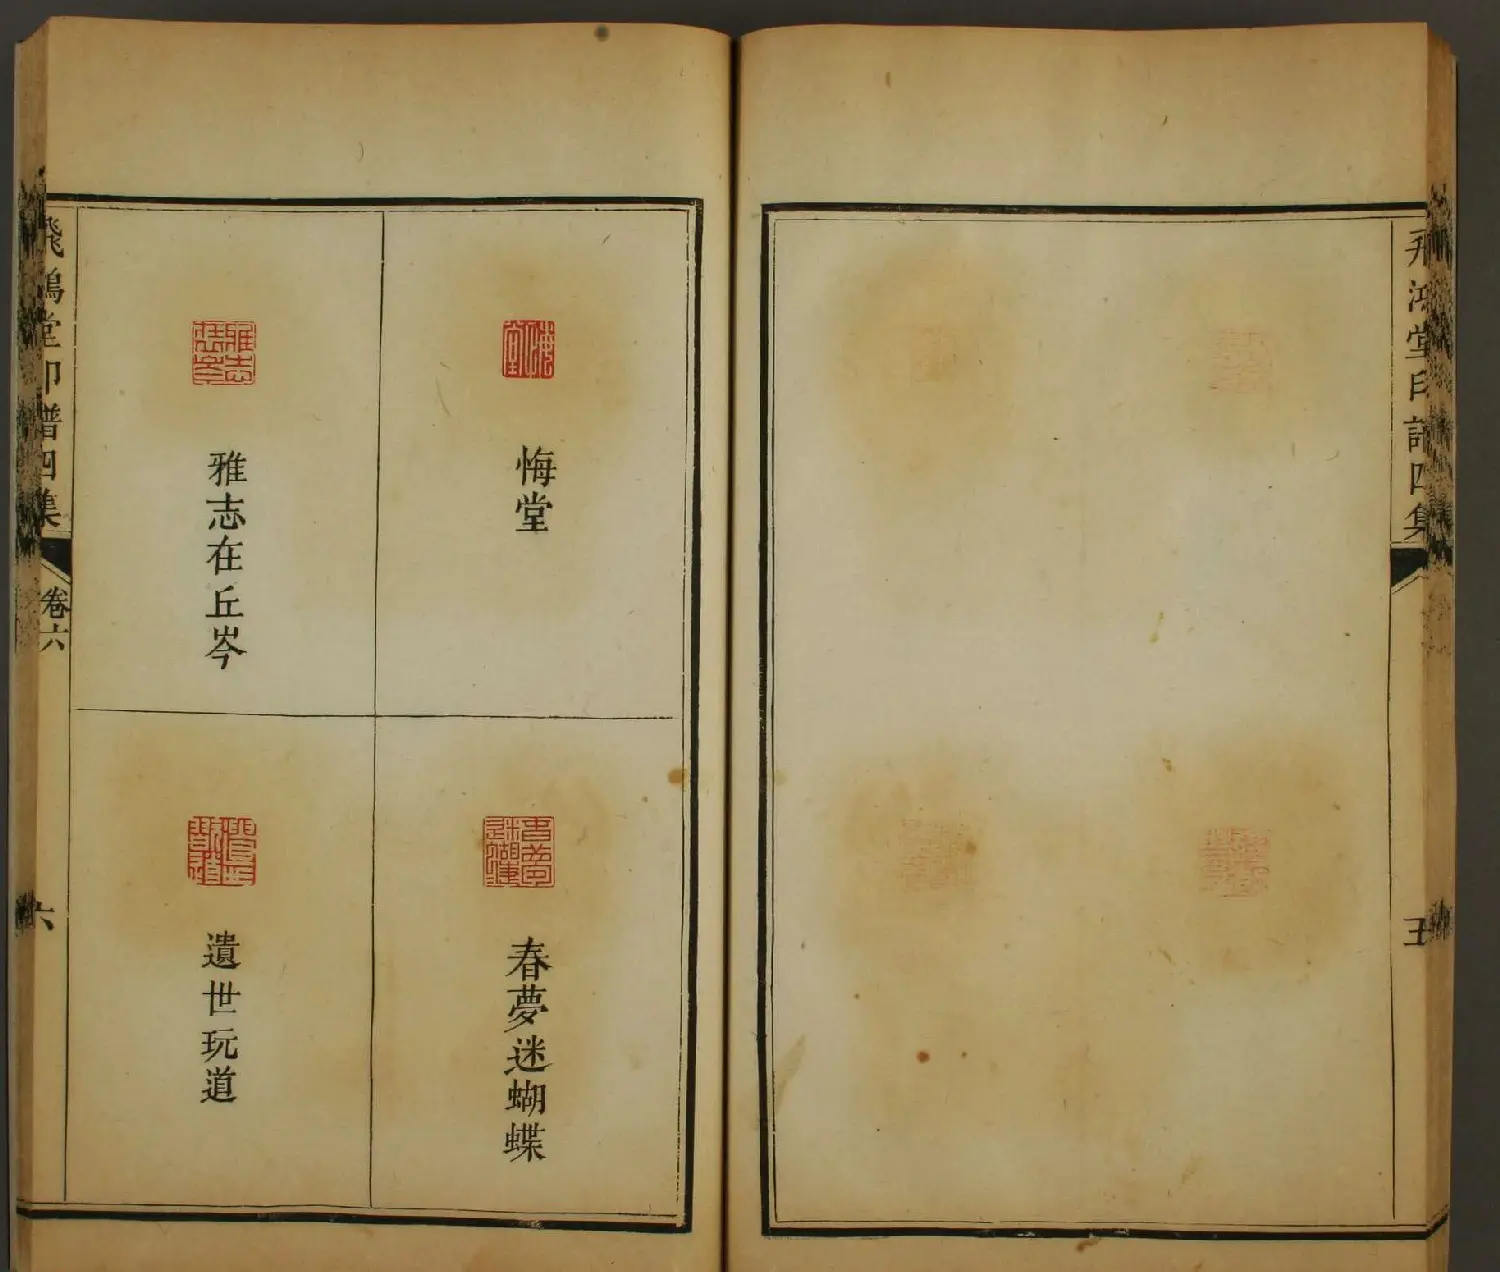 飛鴻堂印譜四集
悔堂
春夢迷蝴蝶
雅志在丘岑
遺世玩道
飛鴻堂印譜四集
卷六
六